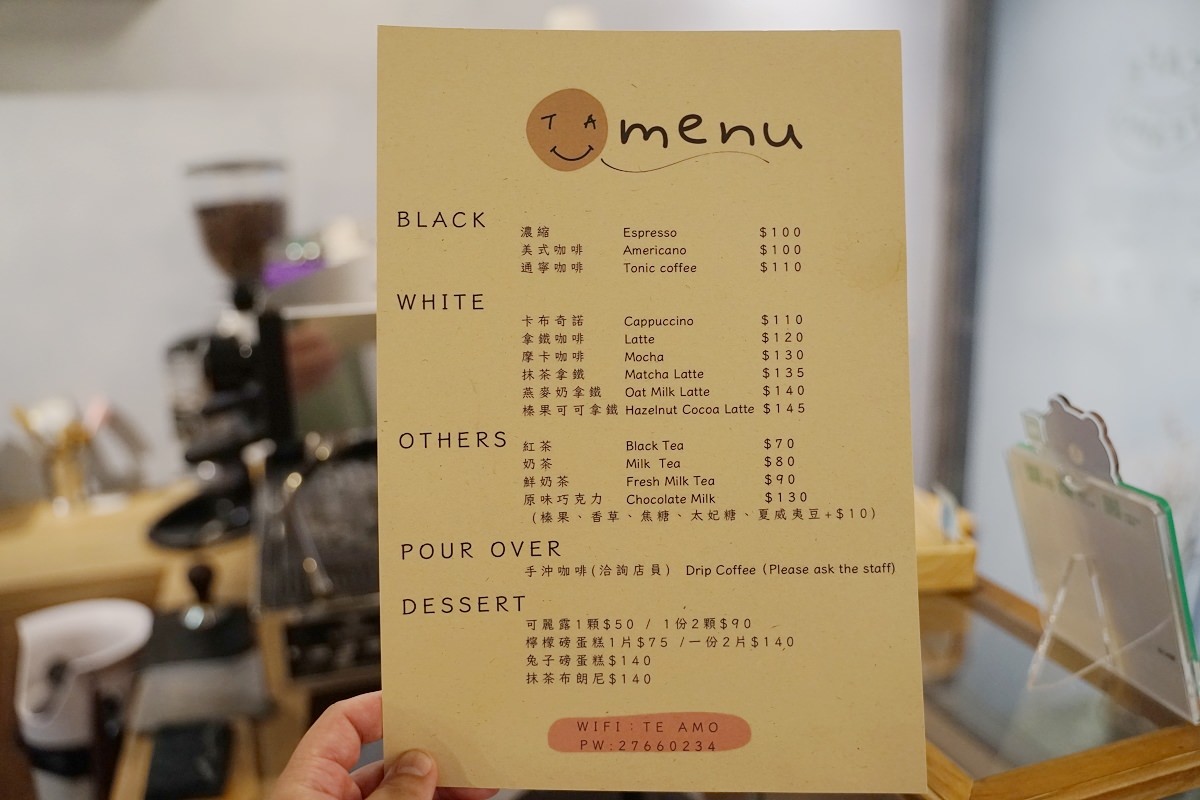 TA menu
BLACK
濃縮 Espresso $100
美式咖啡 Americano $100
通寧咖啡 Tonic coffee $110
WHITE
卡布奇諾 Cappuccino $110
拿鐵咖啡 Latte $120
摩卡咖啡 Mocha $130
抹茶拿鐵 Matcha Latte $135
燕麥奶拿鐵 Oat Milk Latte $140
榛果可可拿鐵 Hazelnut Cocoa Latte $145
OTHERS
紅茶 Black Tea $70
奶茶 Milk Tea $80
鮮奶茶 Fresh Milk Tea $90
原味巧克力 Chocolate Milk $130
(榛果、香草、焦糖、太妃糖、夏威夷豆+$10)
POUR OVER
手沖咖啡(洽詢店員) Drip Coffee (Please ask the staff)
DESSERT
可麗露1顆$50 / 1份2顆$90
檸檬磅蛋糕1片$75 /一份2片$140
兔子磅蛋糕$140
抹茶布朗尼$140
WIFI:TE AMO
PW:27660234